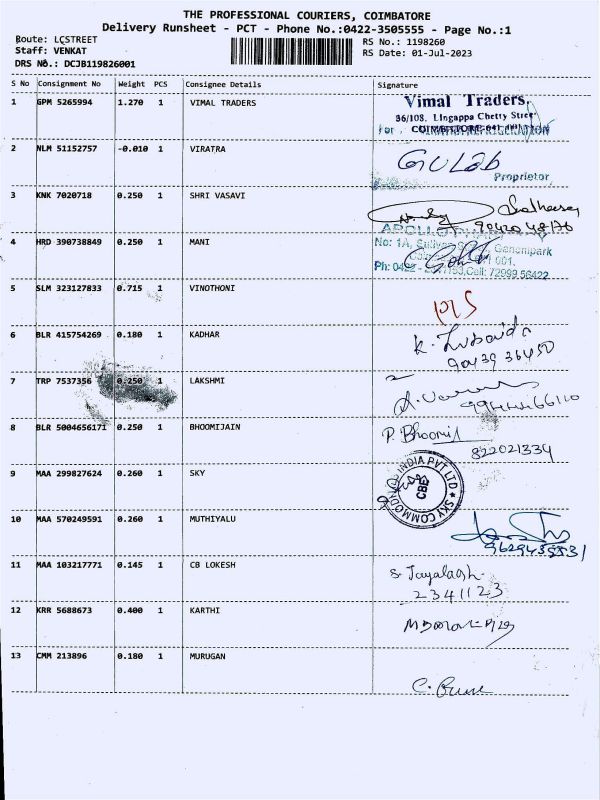 THE PROFESSIONAL COURIERS, COIMBATORE
Delivery Runsheet - PCT - Phone No.:0422-3505555 - Page No.:1
Route: LCSTREET
RS No.: 1198260
Staff: VENKAT
RS Date: 01-Jul-2023
DRS No.: DCJB119826001
S No Consignment No Weight PCS Consignee Details Signature
1 GPM 5265994 1.270 1 VIMAL TRADERS
Vimal Traders,
36/103, Lingappa Chetty Street
COIMBATORE-641
2 NLM 51152757 -0.010 1 VIRATRA
GULab
Proprietor
3 KNK 7020718 0.250 1 SHRI VASAVI
90420 48176
APOLLO
4 HRD 390738849 0.250 1 MANI
No: 1A, Sullivan Ganamipark
001.
Cell: 72999 56422
5 SLM 323127833 0.715 1 VINOTHONI
6 BLR 415754269 0.180 1 KADHAR
K. Zubaida
90439 36450
7 TRP 7537356 0.250 1 LAKSHMI
8 BLR 5004656171 0.250 1 BHOOMIJAIN
P. Bhoomil
822021334
9 MAA 299827624 0.260 1 SKY
SKY COMMODITIES INDIA PVT LTD
CBE
10 MAA 570249591 0.260 1 MUTHIYALU
11 MAA 103217771 0.145 1 CB LOKESH
2341123
12 KRR 5688673 0.400 1 KARTHI
13 CMM 213896 0.180 1 MURUGAN